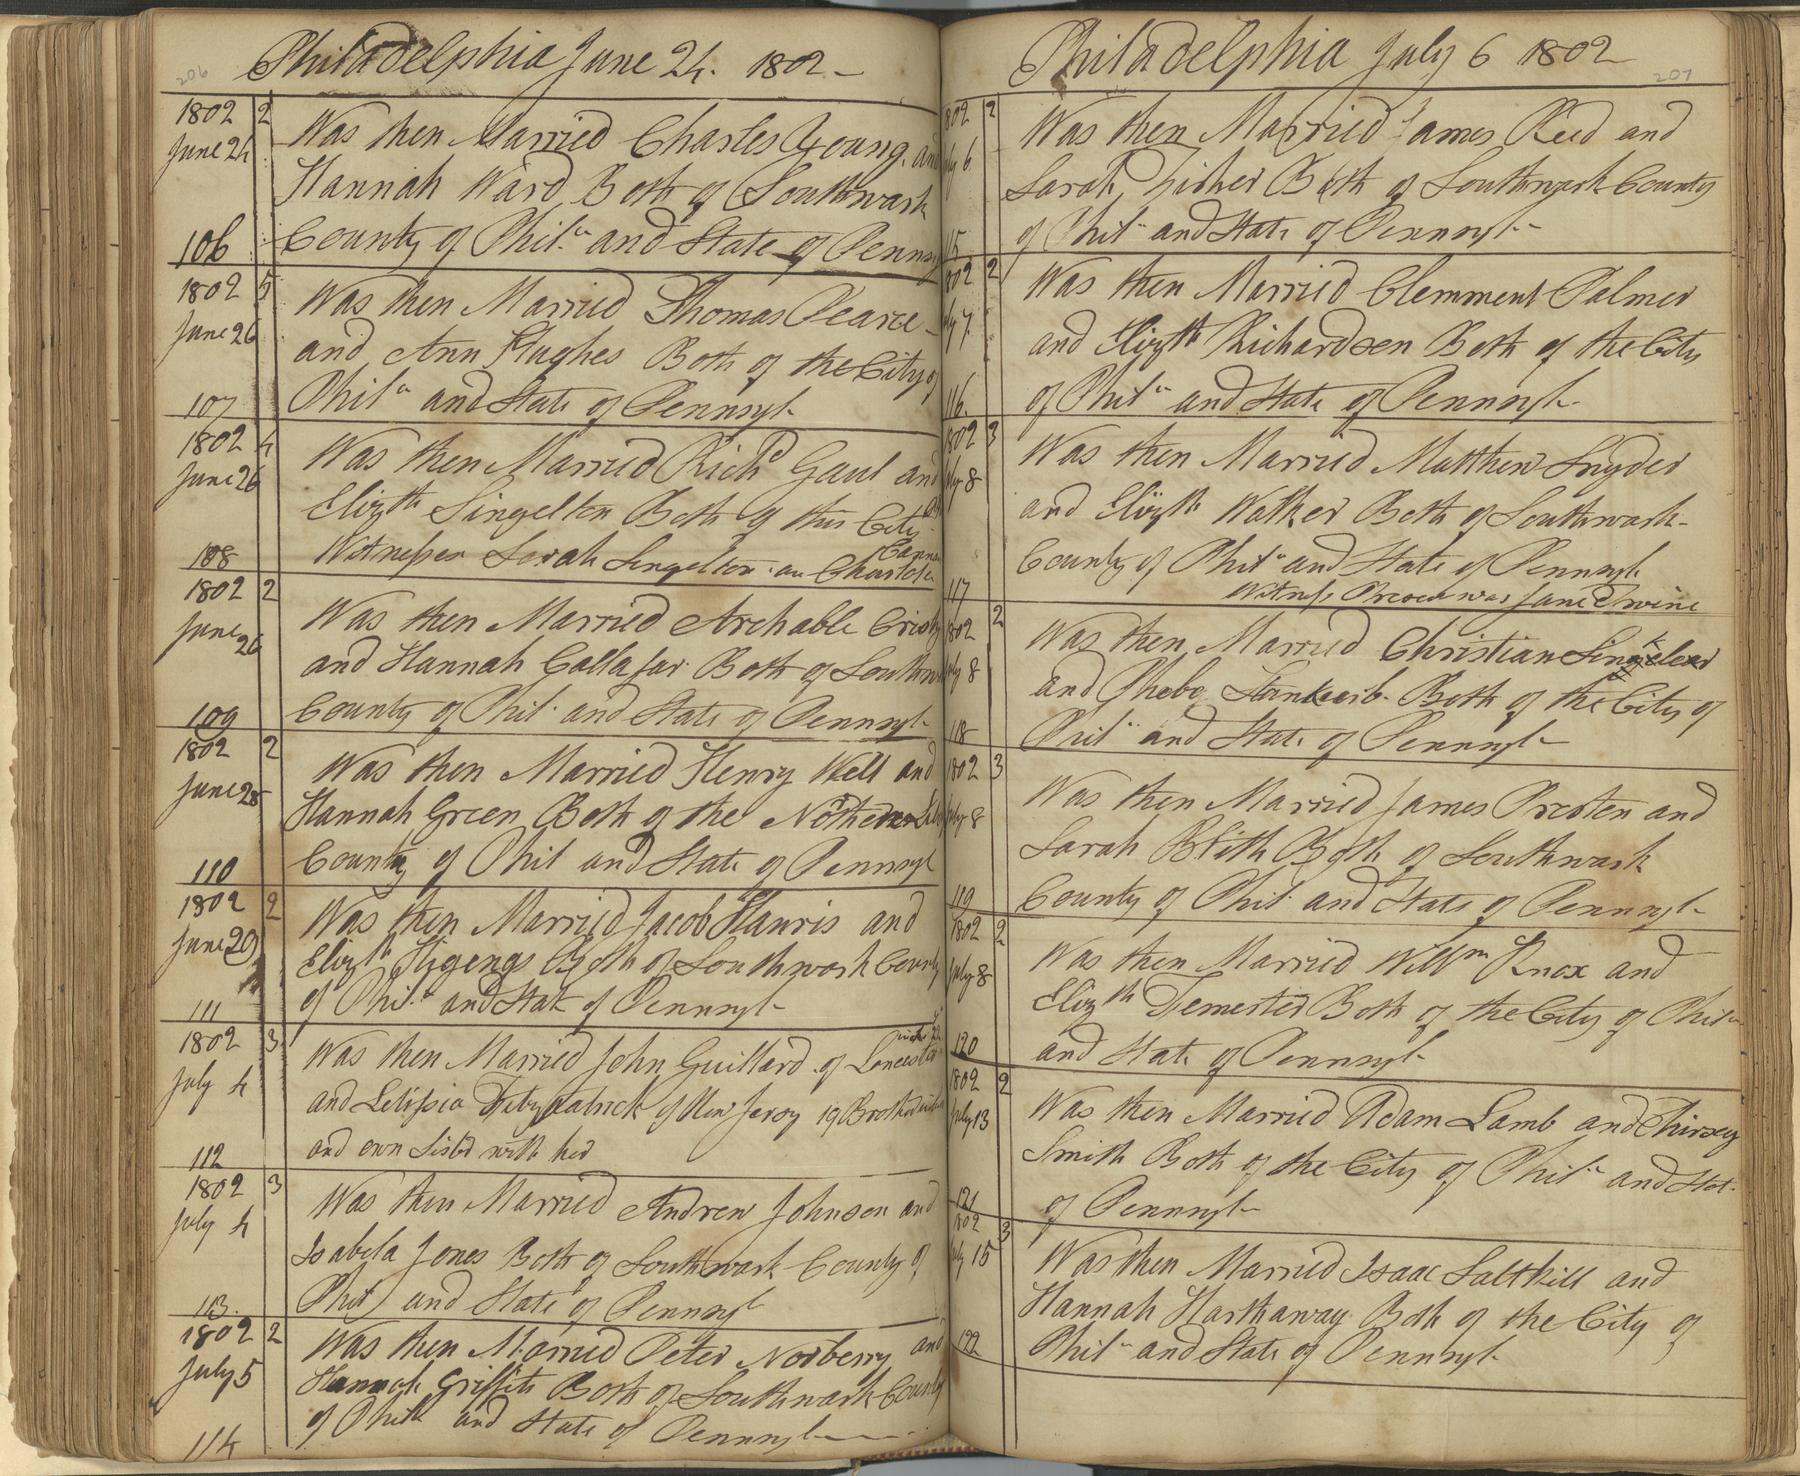 206
Philadelphia June 24. 1802 -
1802 2 Was then Married Charles Young. and
June 24 Hannah Ward Both of Southwark
106 County of Phil.a and State of Pennsy
1802 5 Was then Married Thomas Pearce -
June 26 and Ann Hughes Both of the City of
107 Phil.a and State of Pennsyl
1802 4 Was then Married Richd Gaul and
June 26 Elizth Singelton Both of this City
108 Witnesses Sarah Singelton
1802 2 Was then Married Archable
June 26 and Hannah Callafar Both of Southw
109 County of Phil.a and State of Pennsyl
1802 2 Was then Married Henry Well and
June 28 Hannah Green Both of the
110 County of Phil and State of Pennsyl
1802 2 Was then Married Jacob Harris and
June 29 Elizth Higengs Both of Southwark County
111 of Phil.a and State of Pennsyl
1802 3 Was then Married John Guillard of
July 4 and of New Jersy
112 and own Sister with her
1802 3 Was then Married Andrew Johnson and
July 4 Isabela Jones Both of Southwark County of
113. Phil and State of Pennsyl
1802 2 Was then Married Peter Norberry and
July 5 Hannah Griffits Both of Southwark County
114 of Phila and State of Pennsyl
207
Philadelphia July 6 1802
802 2 Was then Married James Reed and
ly 6 Sarah Fisher Both of Southwark County
115 of Phil.a and State of Pennsyl
802 2 Was then Married Clemment Palmer
ly 7. and Elizth Richardson Both of the City
116. of Phil.a and State of Pennsyl
1802 3 Was then Married Matthew Snyder
ly 8 and Elizth Walker Both of Southwark-
County of Phil.a and State of Pennsyl
117 Witness Present was Jane
1802 2 Was then Married Christian
ly 8 and Phebe Both of the City of
118 Phil.a and State of Pennsyl
1802 3 Was then Married James Presten and
July 8 Sarah Blith Both of Southwark
119 County of Phil. and State of Pennsyl
1802 2 Was then Married Willm Knox and
July 8 Elizth Both of the City of Phil.a
120 and State of Pennsyl
1802 2 Was then Married Adam Lamb and
July 13 Smith Both of the City of Phil.a and Stat
121 of Pennsyl
1802 3 Was then Married Isaac Saltkill and
ly 15 Hannah Harthaway Both of the City of
122 Phil.a and State of Pennsyl